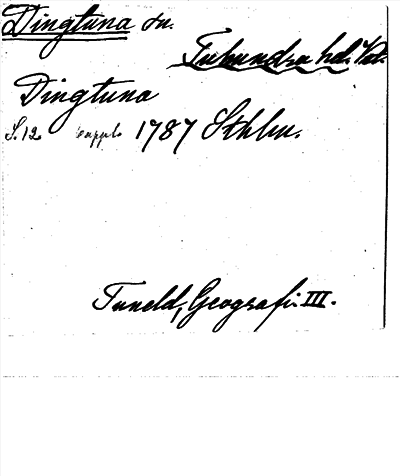 Dingtuna sn.
Tuhundra hd. Vstm.
Dingtuna
S. 12 uppl. 1787 Sthlm.
Tuneld, Geografi III.